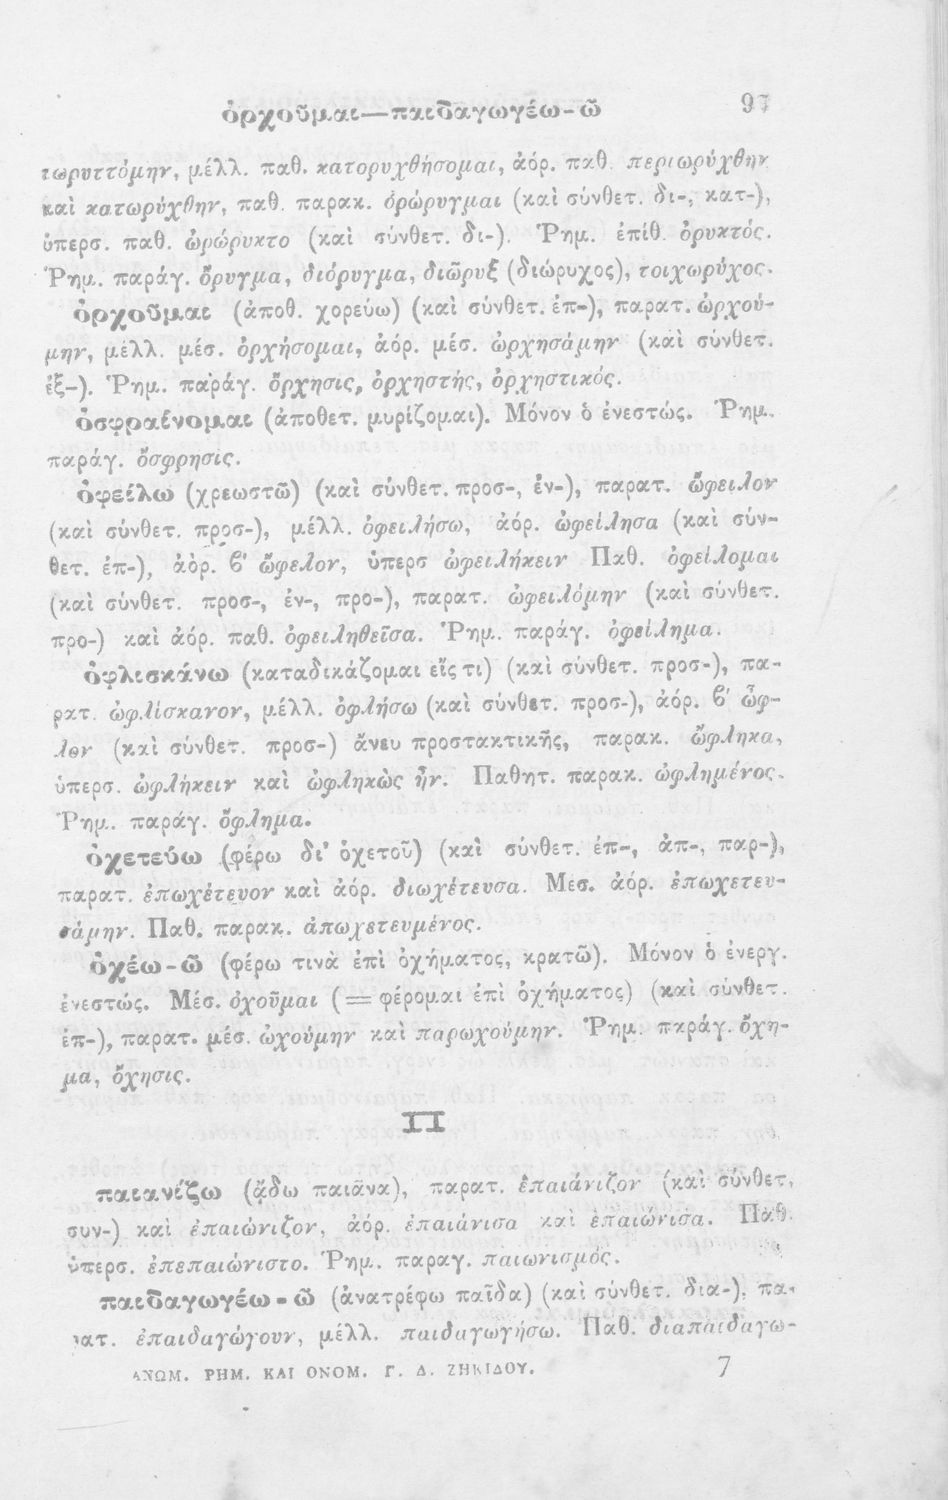 ὀρχοῦμαι—παιδαγωγέω-ῶ 97
τωρυττόμην, μέλλ. παθ. κατορυχθήσομαι, ἀόρ. παθ. περιωρύχθην
καὶ κατωρύχθην, παθ. παρακ. ὀρώρυγμαι (καὶ σύνθετ. δι-, κατ-),
ὑπερσ. παθ. ὠρώρυκτο (καὶ σύνθετ. δι-). Ῥημ. ἐπίθ. ὀρυκτός.
Ῥημ. παράγ. ὄρυγμα, διόρυγμα, διῶρυξ (διώρυχος), τοιχωρύχος.
ὀρχοῦμαι (ἀποθ. χορεύω) (καὶ σύνθετ. ἐπ-), παρατ. ὠρχού-
μην, μέλλ. μέσ. ὀρχήσομαι, ἀόρ. μέσ. ὠρχησάμην (καὶ σύνθετ.
ἐξ-). Ῥημ. παράγ. ὄρχησις, ὀρχηστής, ὀρχηστικός.
ὀσφραίνομαι (ἀποθετ. μυρίζομαι). Μόνον ὁ ἐνεστώς. Ῥημ.
παράγ. ὄσφρησις.
ὀφείλω (χρεωστῶ) (καὶ σύνθετ. προσ-, ἐν-), παρατ. ὤφειλον
(καὶ σύνθετ. προσ-), μέλλ. ὀφειλήσω, ἀόρ. ὠφείλησα (καὶ σύν-
θετ. ἐπ-), ἀὸρ. β' ὤφελον, ὑπερσ ὠφειλήκειν Παθ. ὀφείλομαι
(καὶ σύνθετ. προσ-, ἐν-, προ-), παρατ. ὠφειλόμην (καὶ σύνθετ.
προ-) καὶ ἀόρ. παθ. ὀφειληθεῖσα. Ῥημ. παράγ. ὀφείλημα.
ὀφλισκάνω (καταδικάζομαι εἴς τι) (καὶ σύνθετ. προσ-), πα-
ρατ. ὠφλίσκανον, μέλλ. ὀφλήσω (καὶ σύνθετ. προσ-), ἀόρ. β' ὦφ-
λον (καὶ σύνθετ. προσ-) ἄνευ προστακτικῆς, παρακ. ὤφληκα,
ὑπερσ. ὠφλήκειν καὶ ὠφληκὼς ἦν. Παθητ. παρακ. ὠφλημένος.
Ῥημ. παράγ. ὄφλημα.
ὀχετεύω (φέρω δι' ὀχετοῦ) (καὶ σύνθετ. ἐπ-, ἀπ-, παρ-),
παρατ. ἐπωχέτευον καὶ ἀόρ. διωχέτευσα. Μέσ. ἀόρ. ἐπωχετευ-
σάμην. Παθ. παρακ. ἀπωχετευμένος.
ὀχέω-ῶ (φέρω τινὰ ἐπὶ ὀχήματος, κρατῶ). Μόνον ὁ ἐνεργ.
ἐνεστώς. Μέσ. ὀχοῦμαι (=φέρομαι ἐπὶ ὀχήματος) (καὶ σύνθετ.
ἐπ-), παρατ. μέσ. ὠχούμην καὶ παρωχούμην. Ῥημ. παράγ. ὄχη-
μα, ὄχησις.
Π
παιανίζω (ᾄδω παιᾶνα), παρατ. ἐπαιάνιζον (καὶ σύνθετ.
συν-) καὶ ἐπαιώνιζον, ἀόρ. ἐπαιάνισα καὶ ἐπαιώνισα. Παθ.
ὑπερσ. ἐπεπαιώνιστο. Ῥημ. παραγ. παιωνισμός.
παιδαγωγέω-ῶ (ἀνατρέφω παῖδα) (καὶ σύνθετ. δια-), πα-
ρατ. ἐπαιδαγώγουν, μέλλ. παιδαγωγήσω. Παθ. διαπαιδαγω-
ΑΝΩΜ. ΡΗΜ. ΚΑΙ ΟΝΟΜ. Γ. Δ. ΖΗΚΙΔΟΥ. 7